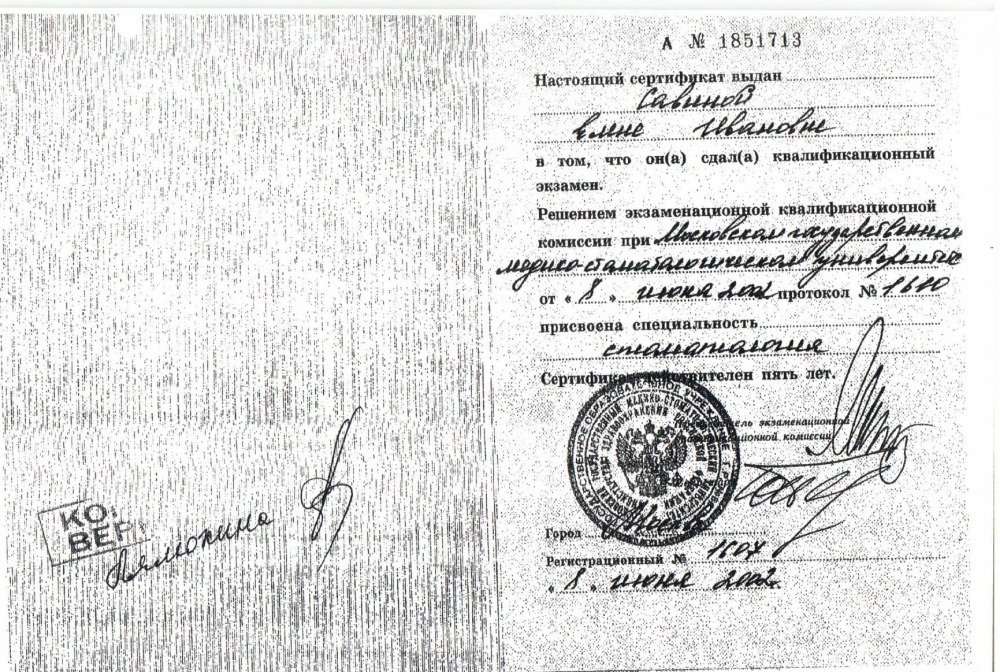 А № 1851713
Настоящий сертификат выдан
Савиной
Елене Ивановне
в том, что он(а) сдал(а) квалификационный
экзамен.
Решением экзаменационной квалификационной
комиссии при Московском государственном
медико-стоматологическом университете
от « 8 » июня 2002 протокол № 1610
присвоена специальность
стоматология
Сертификат действителен пять лет.
экзаменационной
комиссии
Город
Регистрационный № 1507
« 8 » июня 2002г.
КО
ВЕР
Лямокина